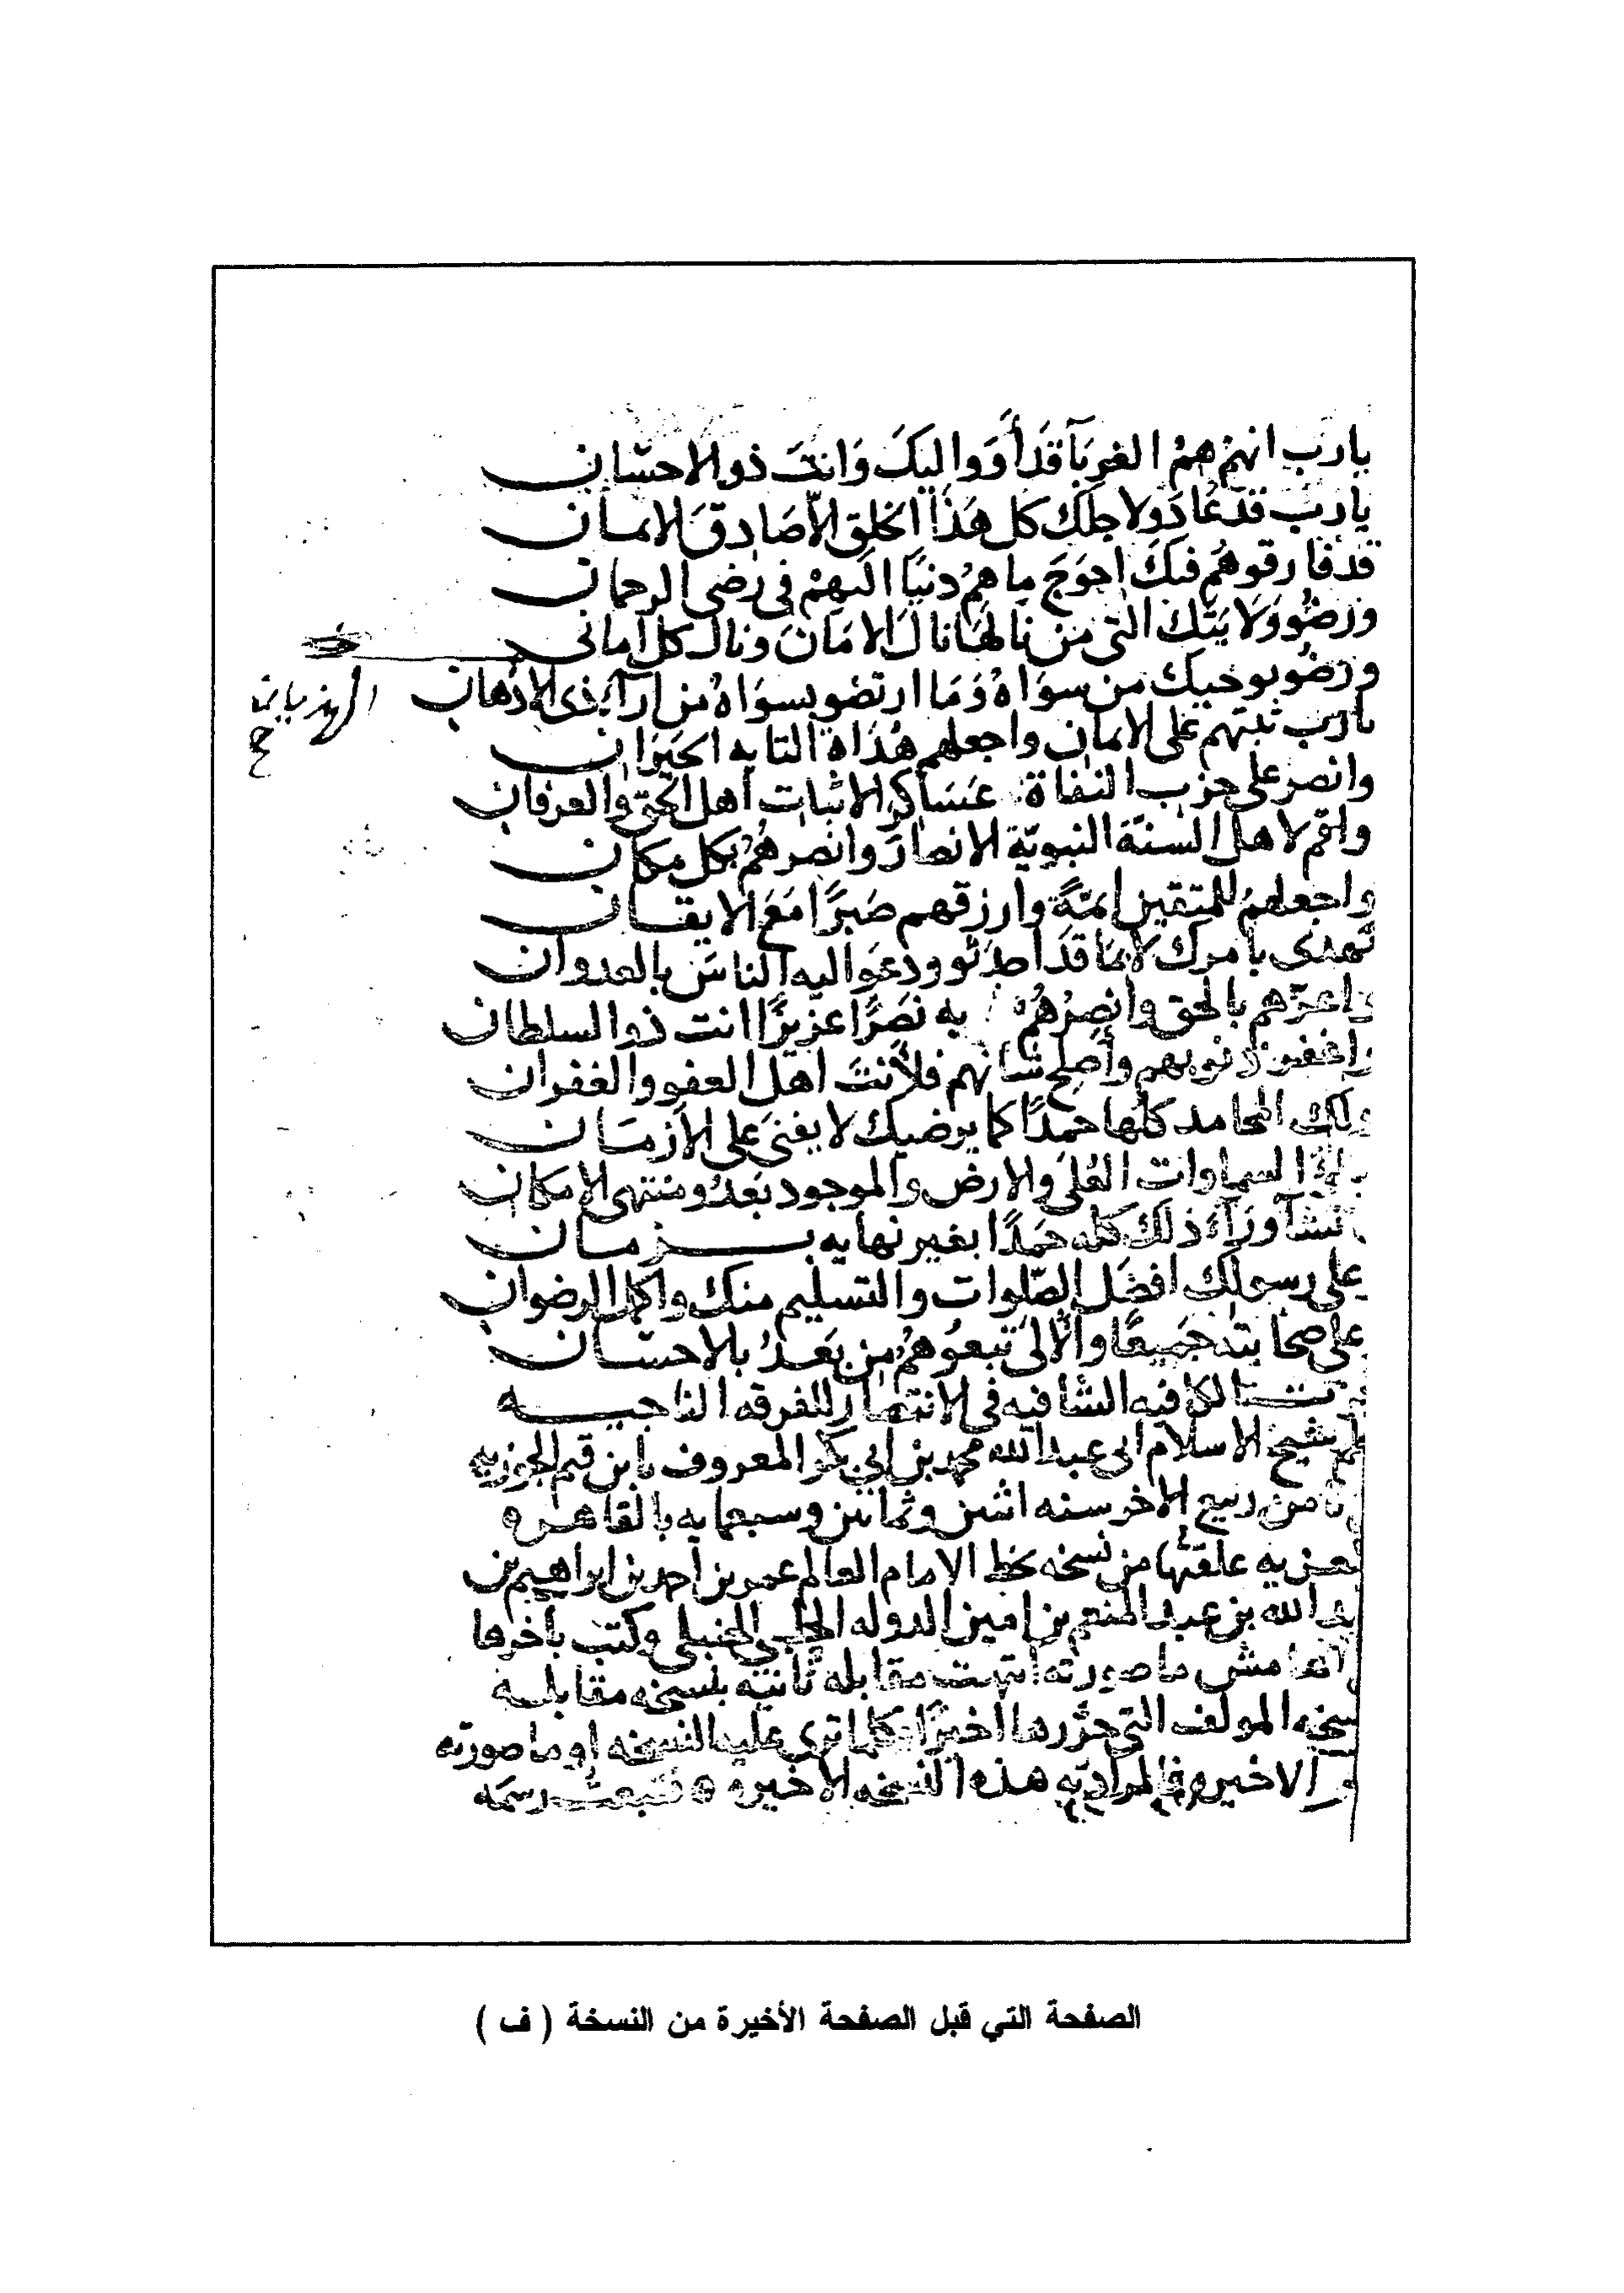 يارب انهم هم الغربآ قد أووا اليك وانت ذو الاحسان
يارب قد عادوا لاجلك كل هذا الخلق الا صادق الايمان
قد فارقوهم فيك احوج ما هم دنيا اليهم في رضى الرحمان
ورضو ولايتك التي من نالها نال الامان ونال كل اماني
ورضو بوحيك من سواه وما ارتضو بسواه من ارآء ذي الاذهان
يارب ثبتهم على الايمان واجعلهم هداة التايه الحيران
وانصر على حزب النفاة عساكر الاثبات اهل الحق والعرفان
واقم لاهل السنة النبوية الانصار وانصرهم بكل مكان
واجعلهم للمتقين ايمة وارزقهم صبرا مع الايقان
تهدى بامرك لا بما قد احدثو ودعوا اليه الناس بالعدوان
واعزهم بالحق وانصرهم به نصرا عزيزا انت ذو السلطان
واغفر ذنوبهم واصلح شانهم فلأنت اهل العفو والغفران
ولك المحامد كلها حمدا كما يرضيك لا يفنى على الازمان
السماوات العلى والارض والموجود بعد ومنتهى الامكان
تشآ ورآء ذلك كله حمدا بغير نهايه بزمان
على رسولك افضل الصلوات والتسليم منك واكمل الرضوان
على صحابته جميعا والالى تبعوهم من بعد بالاحسان
الكافيه الشافيه في الانتصار للفرقه الناجيه
شيخ الاسلام ابى عبد الله محمد بن ابي بكر المعروف بابن قيم الجوزيه
ثامن ربيع الاخر سنه اثنين وثمانين وسبعمايه بالقاهره
علقتها من نسخه بخط الامام العالم عمر بن احمد بن ابراهيم بن
الله بن عبد المنعم بن امين الدوله الحلبي الحنبلي وكتب باخرها
ما صورته انتهت مقابله ثانيه بنسخه مقابله
المولف التي حررها اخيرا وكلما ترى عليه النسخه او ما صورته
الاخيره فالمراد به هذه النسخه الاخيره فتبعت رسمه
الصفحة التي قبل الصفحة الأخيرة من النسخة ( ف )